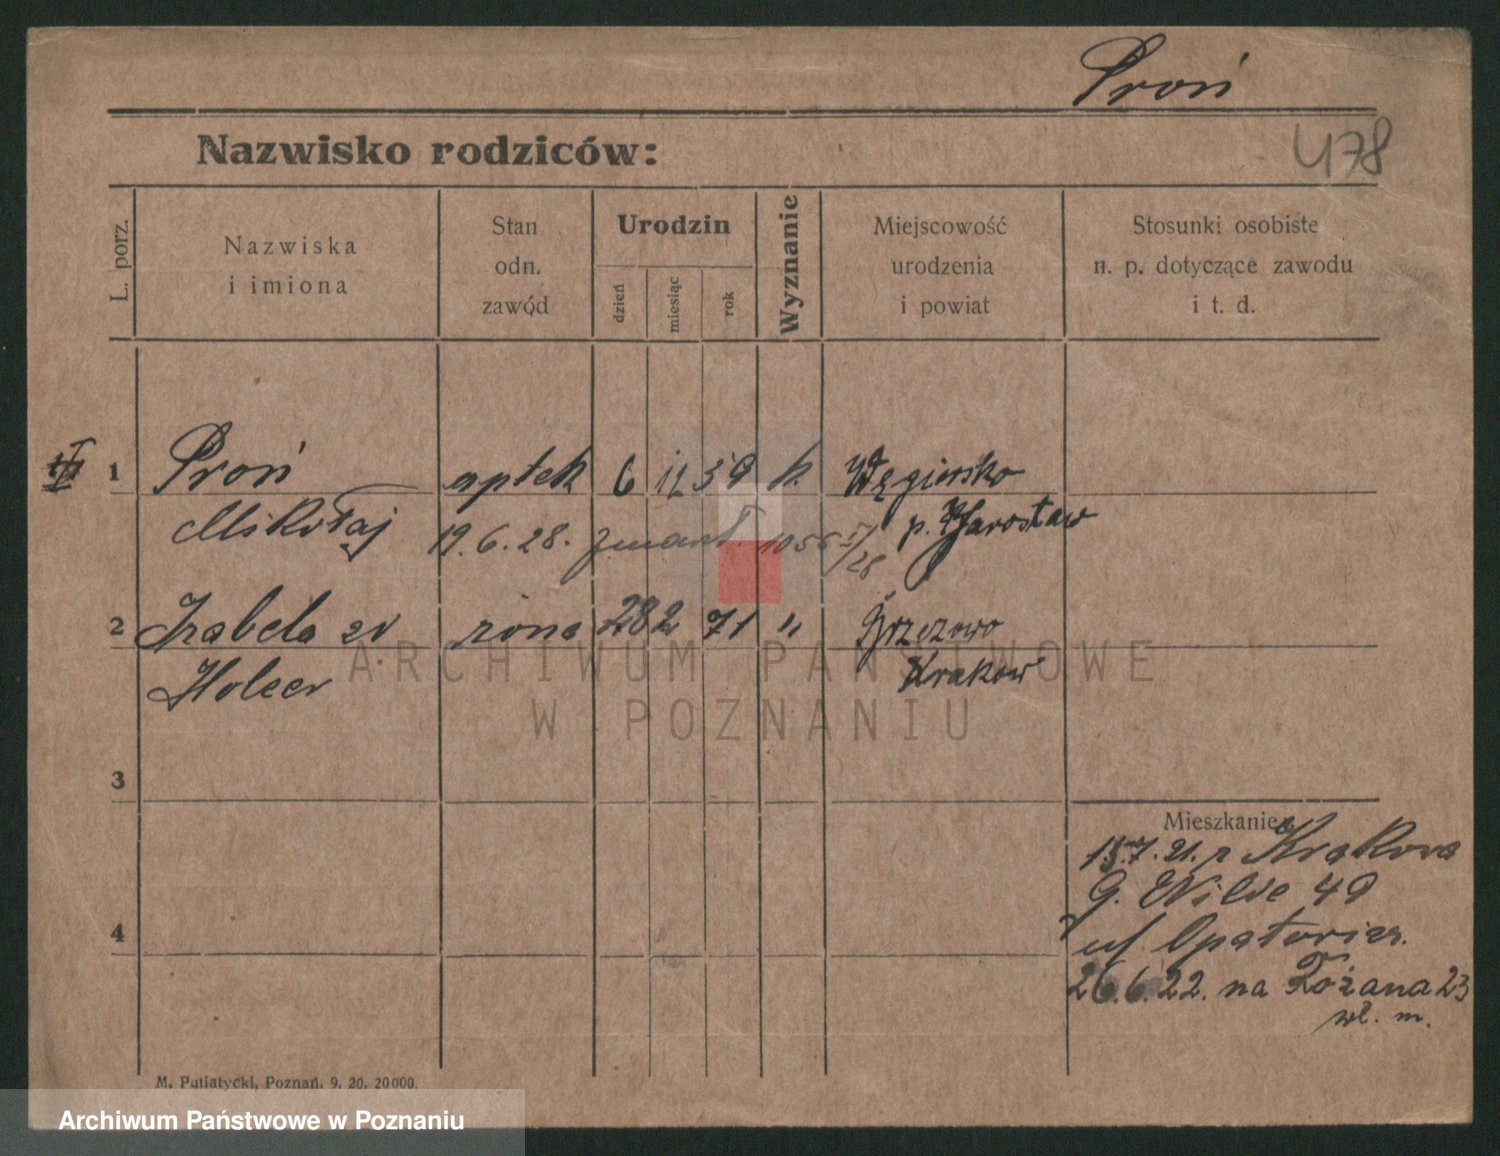 Proń
Nazwisko rodziców:
478
L. porz.
Nazwiska
i imiona
Stan
odn.
zawód
Urodzin
dzień
miesiąc
rok
Wyznanie
Miejscowość
urodzenia
i powiat
Stosunki osobiste
n. p. dotyczące zawodu
i t. d.
1 Proń aptek 6 12 59 k.
Mikołaj 19.6.28. zmarł. 1056
p. Jarosław
2 Izabela żona 28 2 71 "
Holcer Krakow
3
Mieszkanie
15.7.21. z Krakowa
G. Wilde 49
4
26.6.22. na Różana 23
wł. m.
M. Putiatycki, Poznań. 9. 20. 20000.
ARCHIWUM PAŃSTWOWE
W POZNANIU
Archiwum Państwowe w Poznaniu